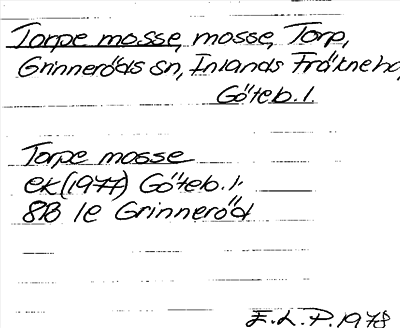 Torpe mosse, mosse, Torp,
Grinneröds sn, Inlands Fräkne hd,
Göteb. l.
Torpe mosse
ek (1977) Göteb. l.
8B 1e Grinneröd
E. L. P. 1978